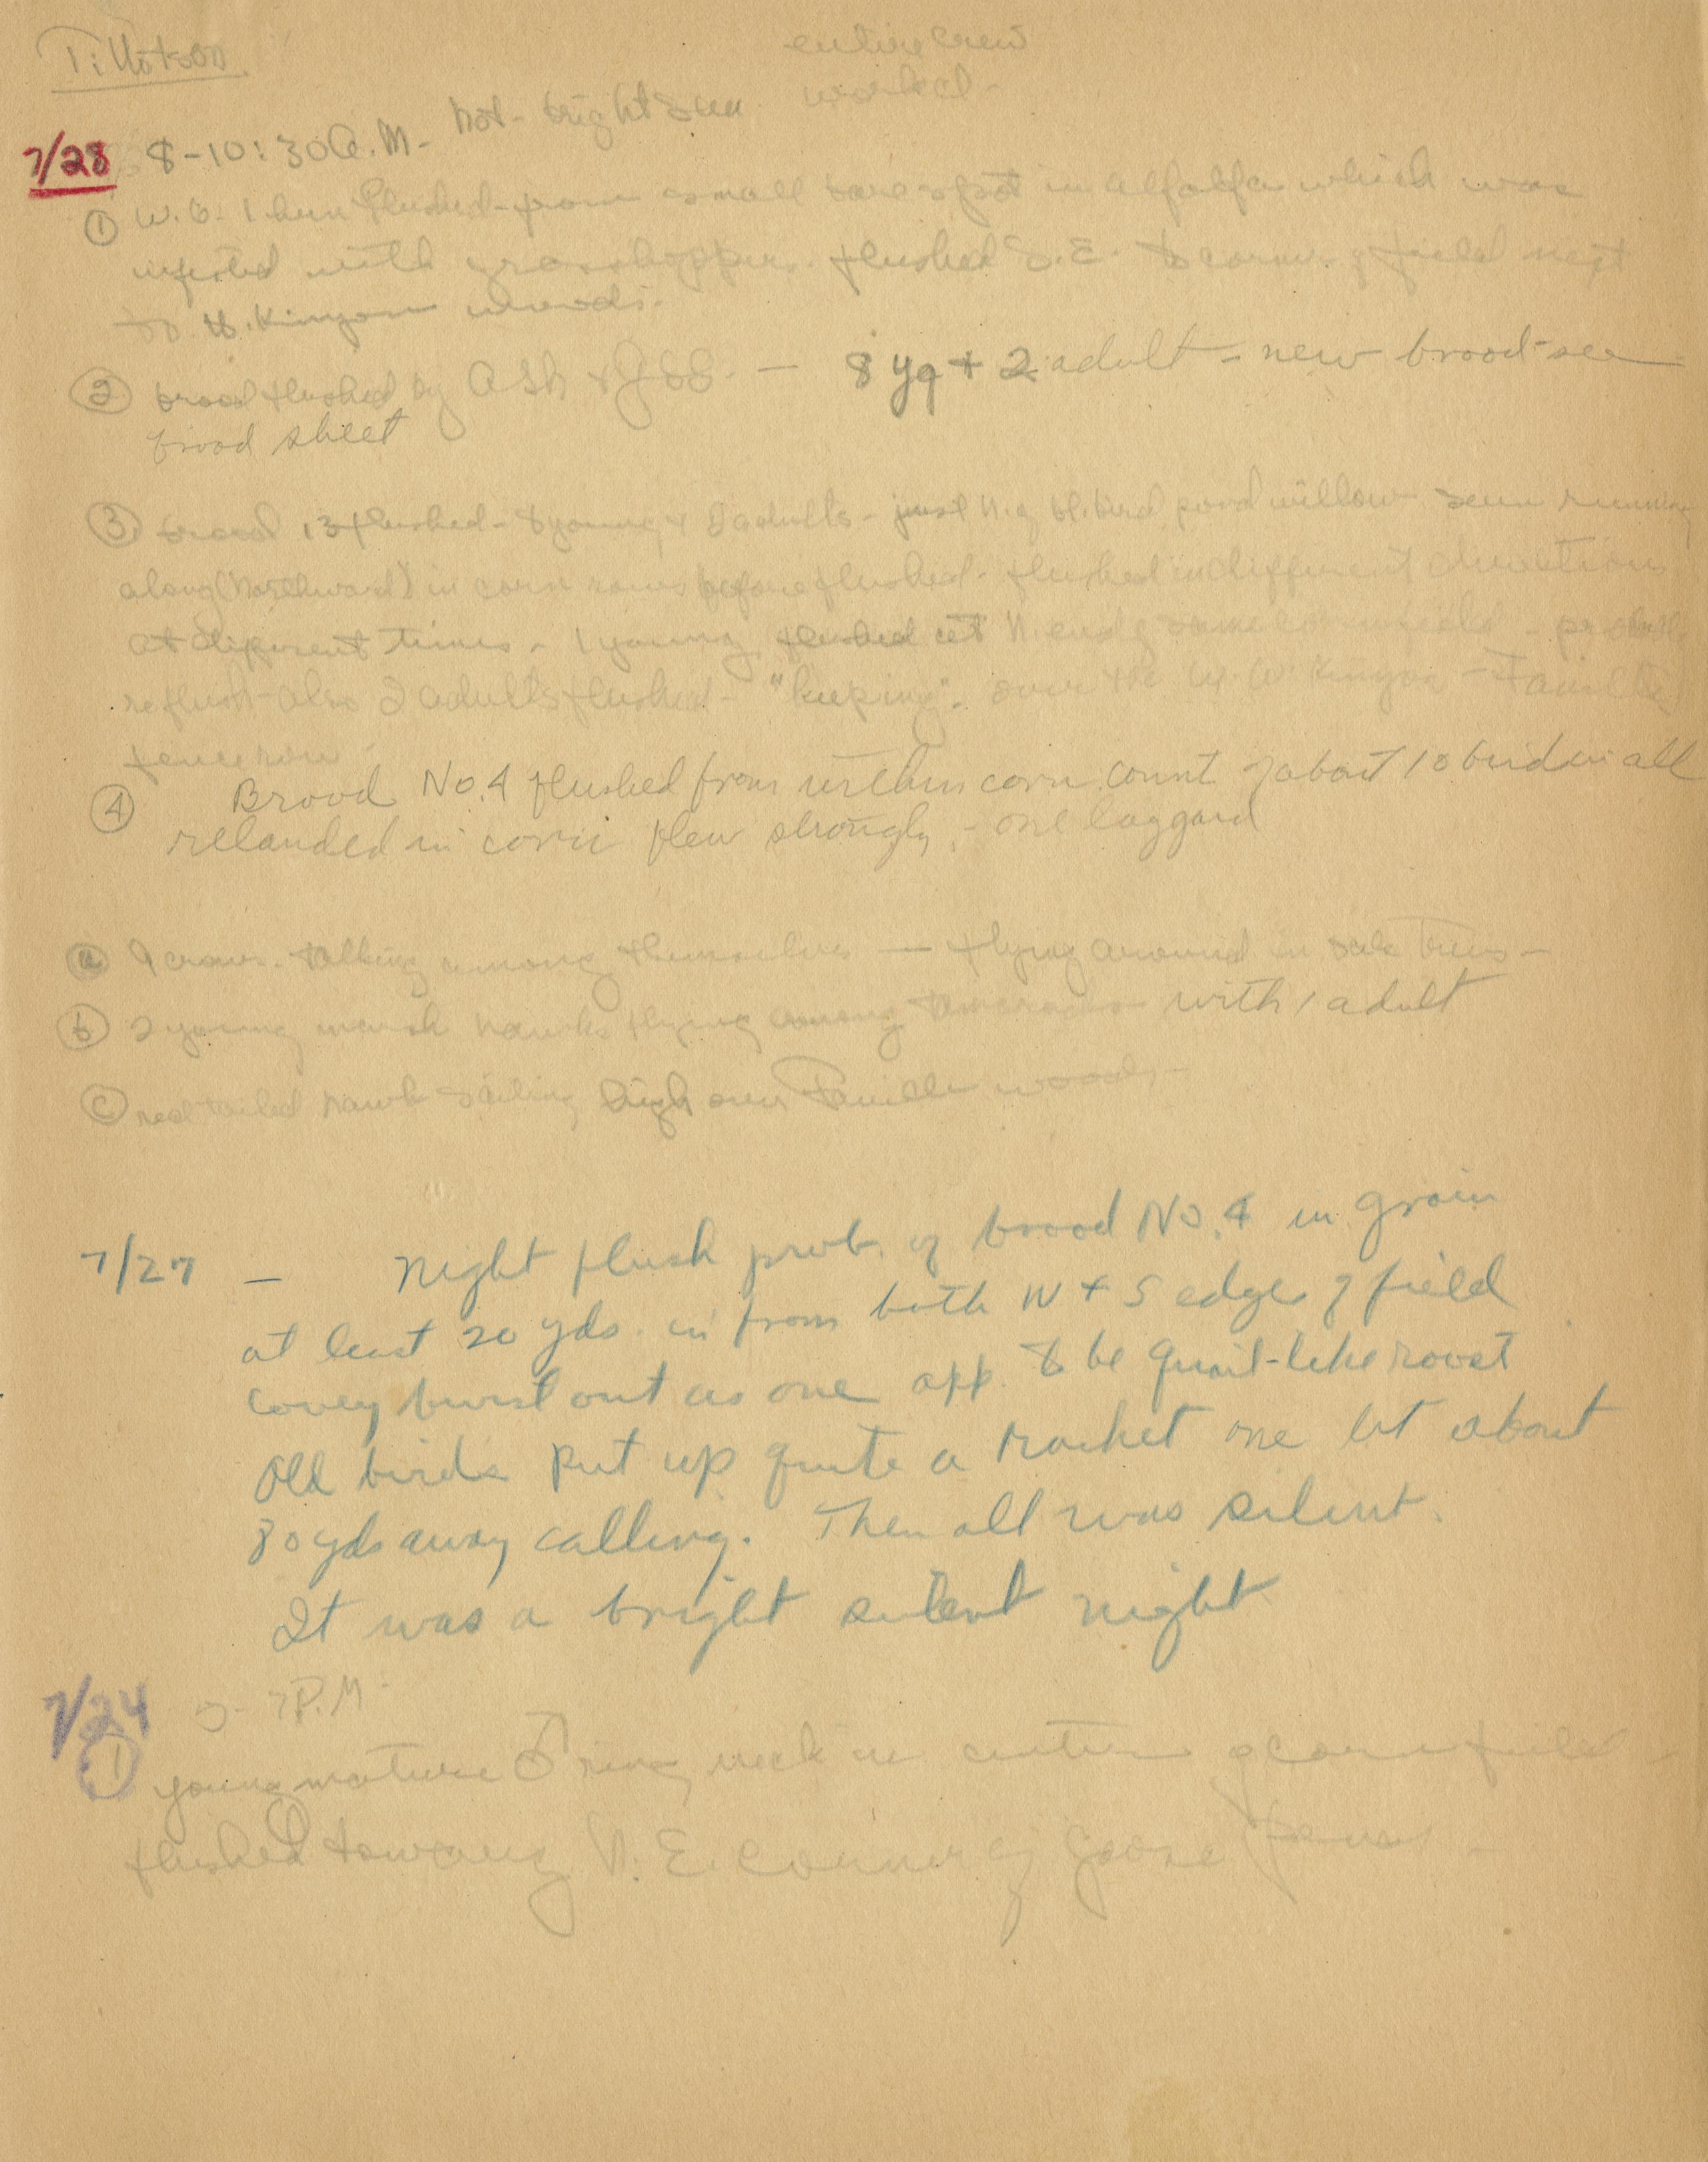 Tillotson
entire crew
worked -
7/28 8-10:30 A.M. - hot - bright sun
① W.O. 1 hen flushed from small bare spot in alfalfa which was
infested with grasshoppers. flushed S.E. to corner of field next
to H. Kinyon woods.
② brood flushed by — 8 yg + 2 adult - new brood - see
brood sheet
③ brood 13 flushed - 8 young + 2 adults - just N. of bl. bird pond willow seen running
along (northward) in corn rows before flushed. flushed in different directions
at different times - 1 young flushed at N. end of same - probable
reflush - also 2 adults flushed - over the W. W. Kinyon - Faville
fencerow
④ Brood No. 4 flushed from within corn count of about 10 birds in all
relanded in corn flew strongly, - one laggard
ⓐ 9 crows. talking among themselves — flying around in oak trees -
ⓑ 2 young marsh hawks flying among tamaracks with 1 adult
ⓒ red tailed hawk sailing high over Faville woods -
7/27 — Night flush prob. of brood No. 4 in grain
at least 20 yds. in from both N + S edges of field
covey burst out as one app. to be quail-like roost
Old birds put up quite a racket one lit about
80 yds away calling. Then all was silent.
It was a bright silent night
7/24 5 - 7 P.M -
① young mature ♂ ring neck in center of corn field -
flushed toward N. E. corner of goose pen -